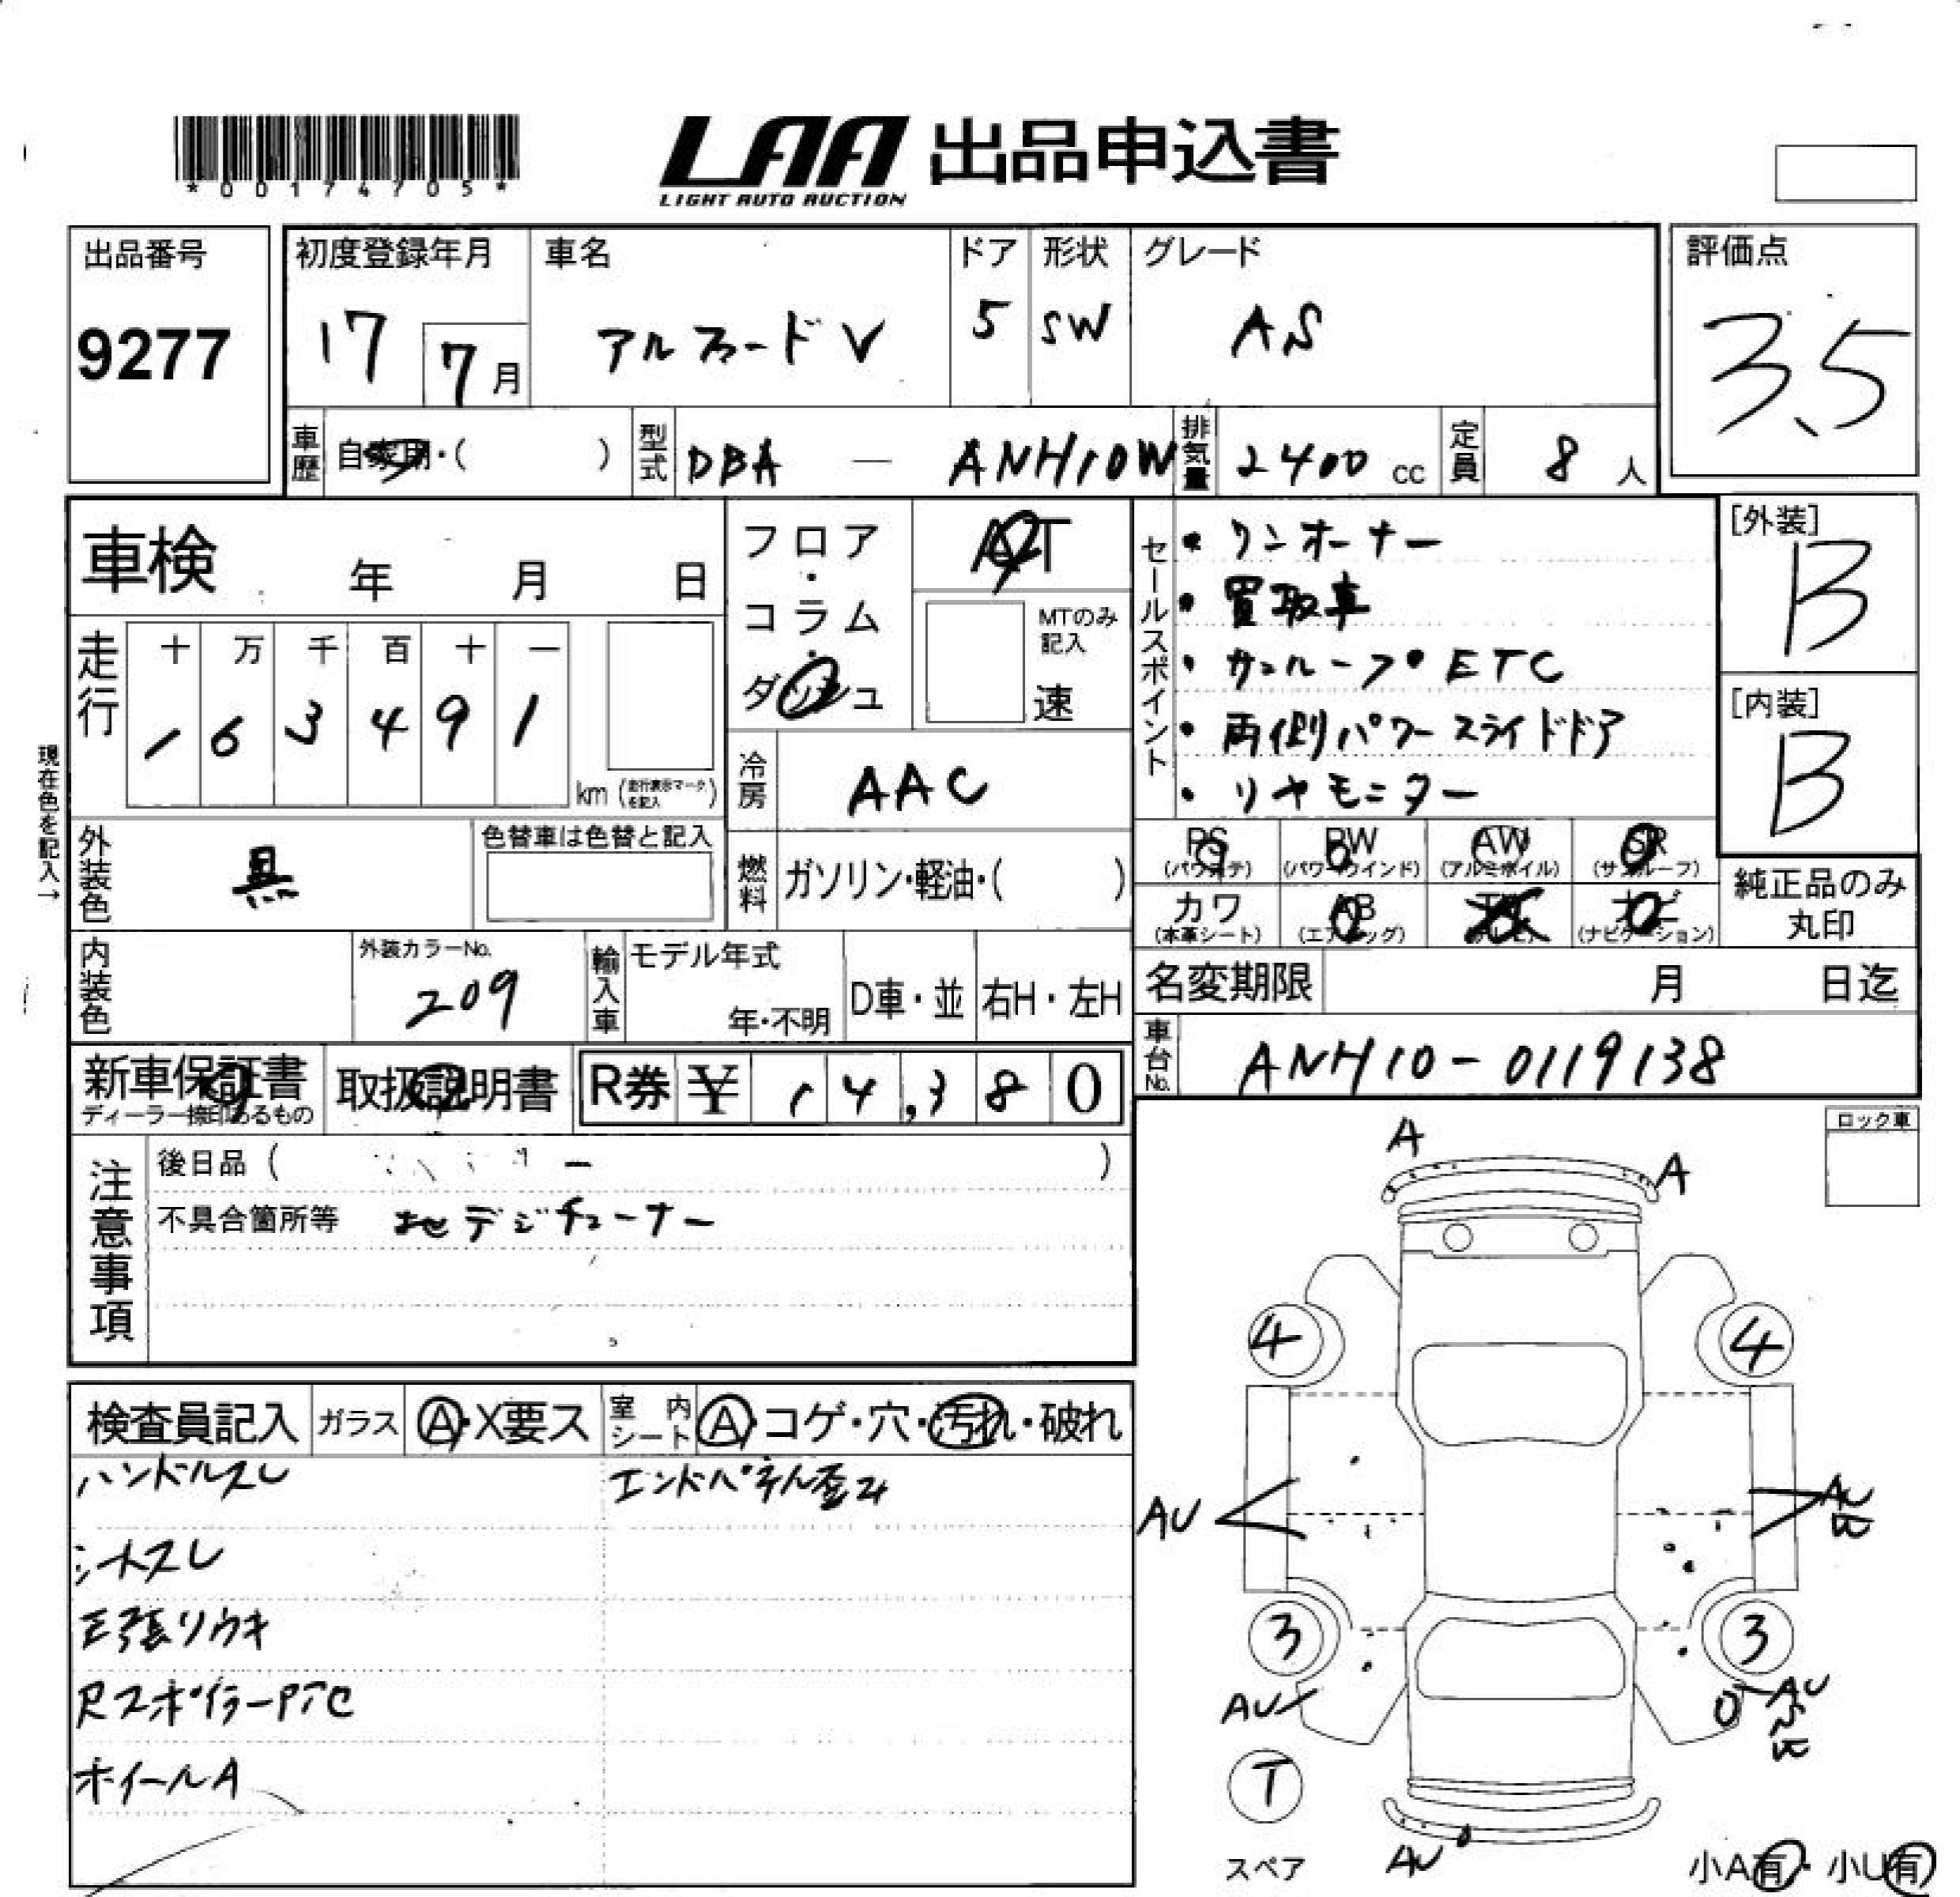 *00174705*
LAA 出品申込書
LIGHT AUTO AUCTION
出品番号
9277
初度登録年月
17
7月
車名
アルファードV
ドア
5
形状
SW
グレード
AS
評価点
3.5
車歴
自家用・( )
型式
DBA — ANH10W
排気量
2400 cc
定員
8 人
車検 年 月 日
走行
十 万 千 百 十 一
1 6 3 4 9 1
km (走行表示マークを記入)
フロア・コラム・ダッシュ
AT
MTのみ記入
速
冷房
AAC
燃料
ガソリン・軽油・( )
セールスポイント
・ワンオーナー
・買取車
・サンルーフ・ETC
・両側パワースライドドア
・リヤモニター
[外装]
B
[内装]
B
現在色を記入→
外装色
黒
色替車は色替と記入
内装色
外装カラーNo.
209
輸入車
モデル年式
年・不明
D車・並
右H・左H
PS (パワステ)
PW (パワーウインド)
AW (アルミホイル)
SR (サンルーフ)
カワ (本革シート)
AB (エアバッグ)
TV (テレビ)
ナビ (ナビゲーション)
純正品のみ
丸印
名変期限 月 日迄
車台No.
ANH10-0119138
新車保証書
ディーラー捺印あるもの
取扱説明書
R券 ¥ 14,380
注意事項
後日品 ( )
不具合箇所等 地デジチューナー
ロック車
検査員記入
ガラス
A・X要ス
室内シート
A・コゲ・穴・汚れ・破れ
ハンドルスレ
エンドパネル歪み
シートスレ
モ張リウキ
Rスポイラー
ホイールA
A
A
4
4
AU
AU
3
3
AU
AU
T
スペア
AU
小A有・小U有